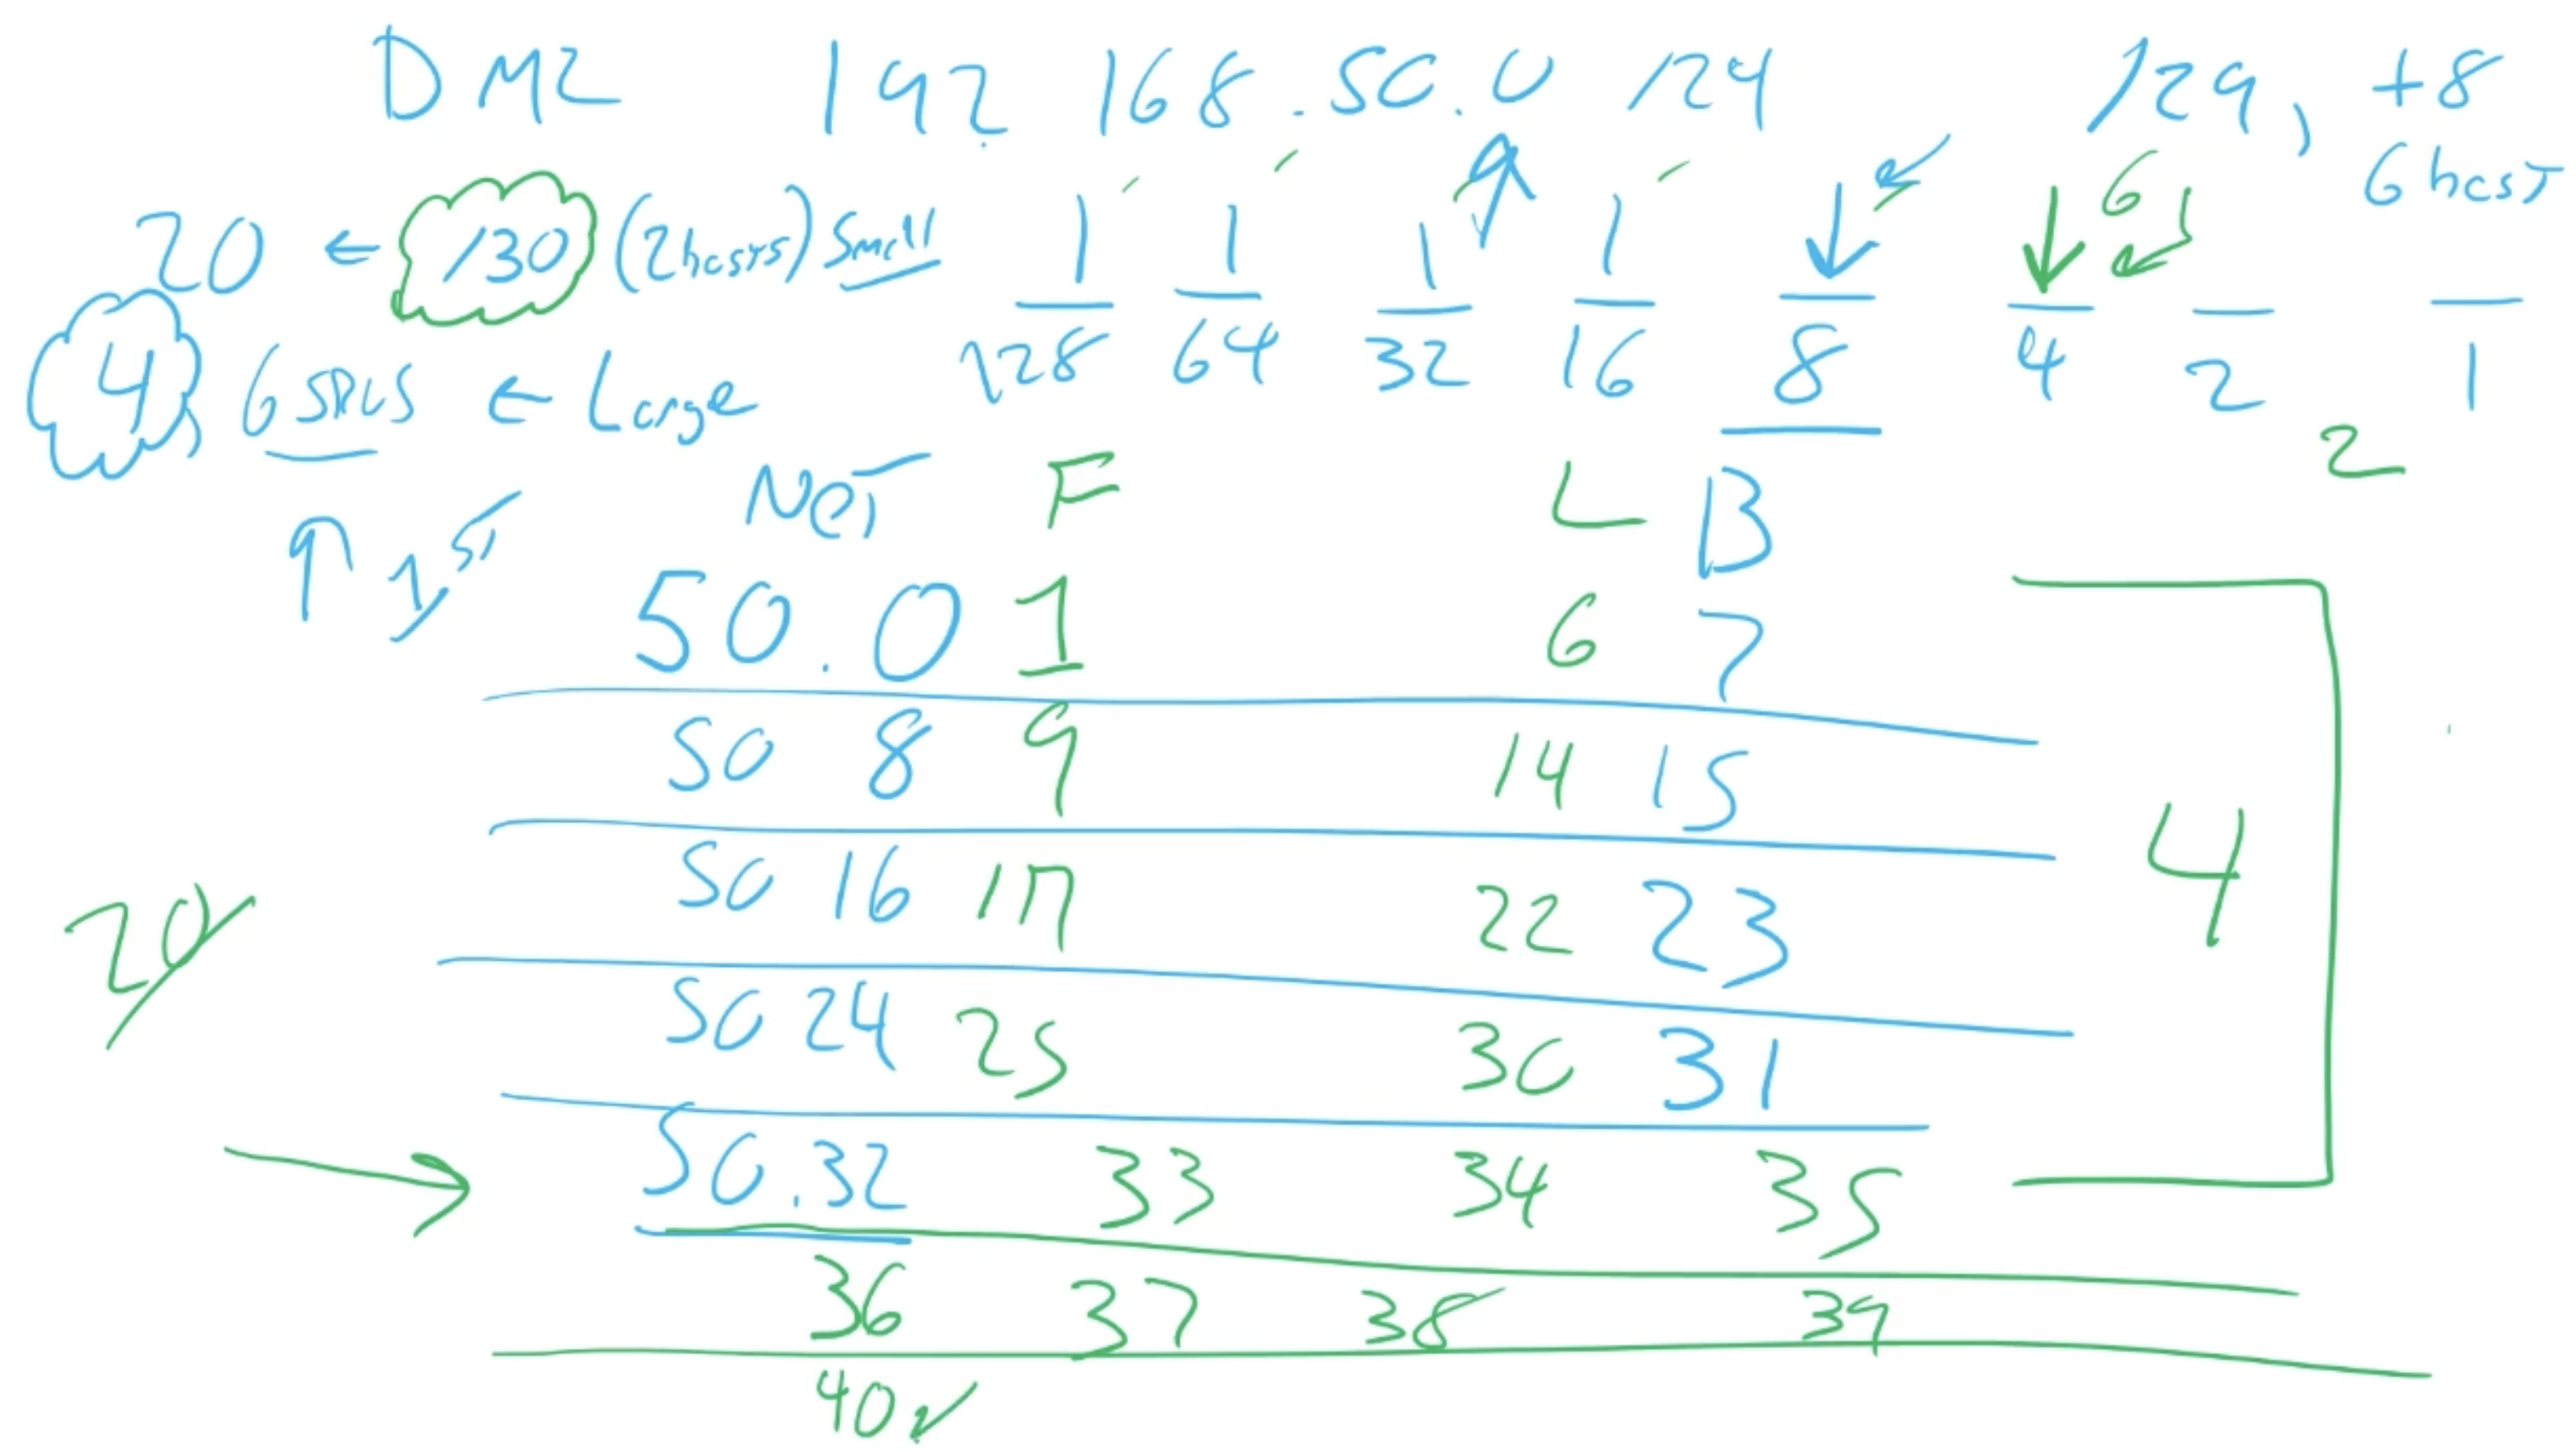 DMZ 192 168.50.0 /24 /29, +8
20 ← /30 (2hosts) Small 1 1 1 1 6 6 host
4, 6 SRVS ← Large 128 64 32 16 8 4 2 1
2
↑ 1ST NET F L B
50.0 1 6 7
50 8 9 14 15
50 16 17 22 23
4
20
50 24 25 30 31
→ 50.32 33 34 35
36 37 38 39
40 ✓